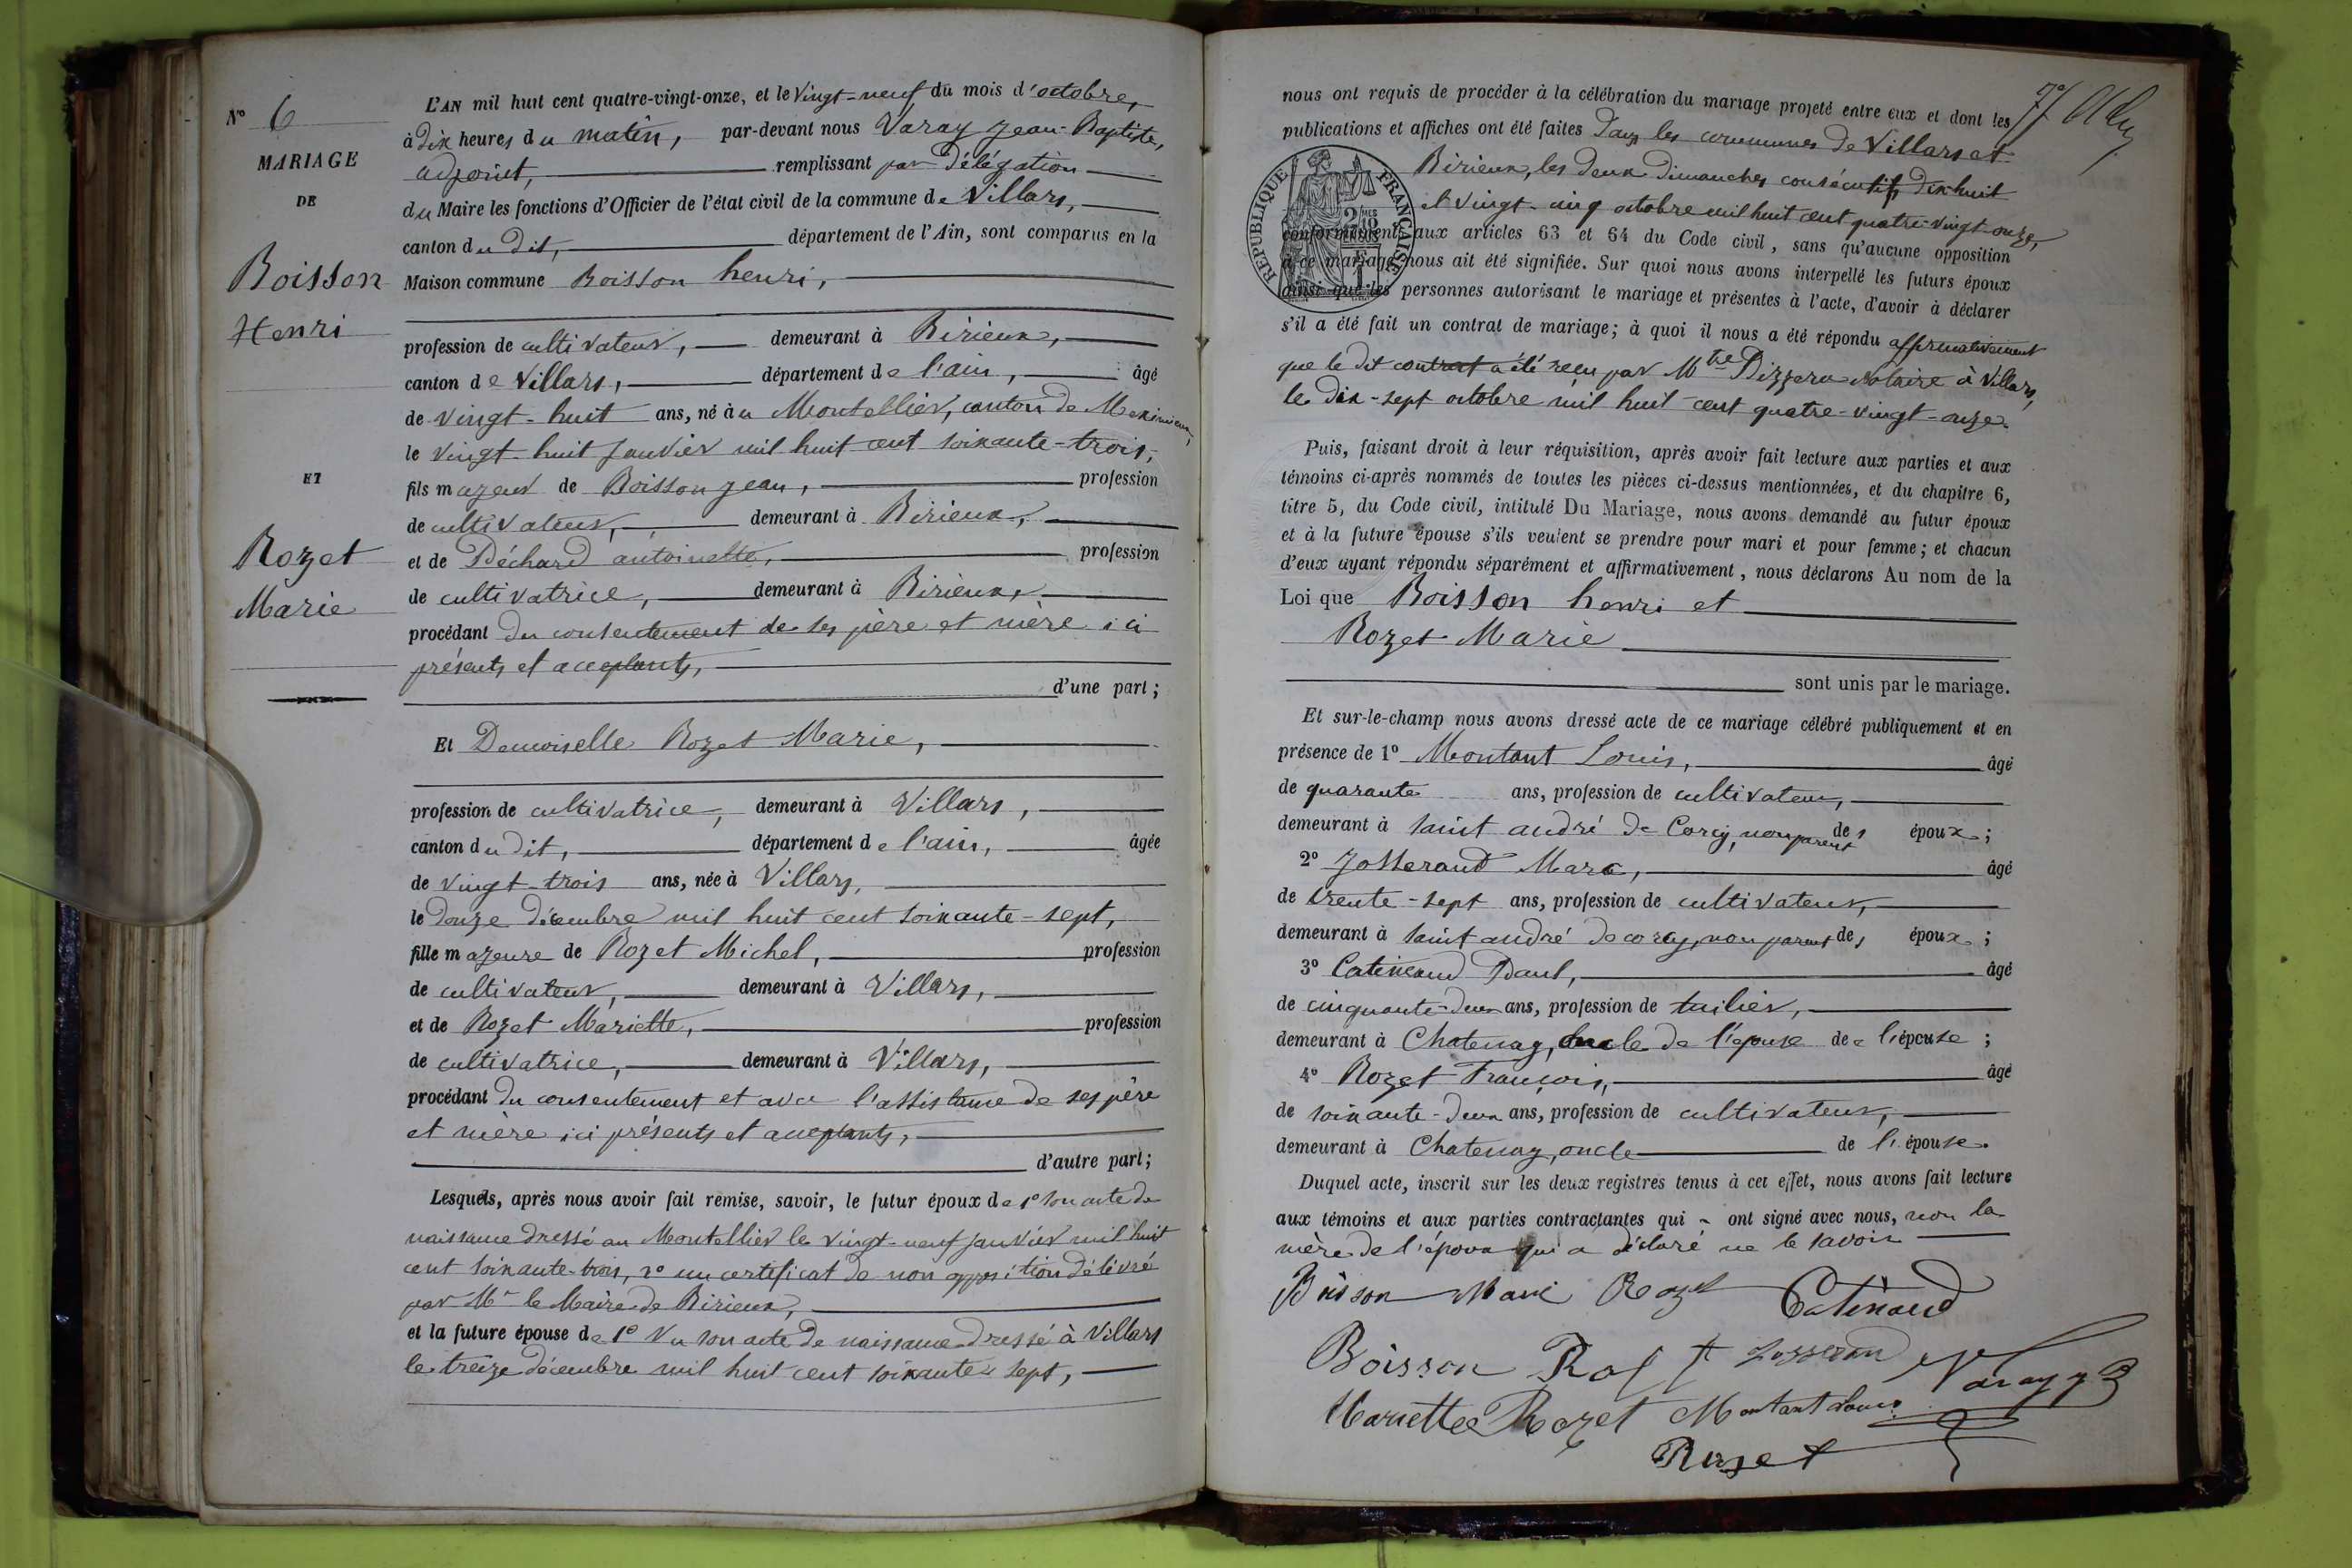 N° 6
MARIAGE
DE
Boisson
Henri
ET
Rozet
Marie
L'AN mil huit cent quatre-vingt-onze, et le vingt-neuf du mois d'octobre,
à dix heures du matin, par-devant nous Varay Jean-Baptiste,
adjoint, remplissant par délégation
du Maire les fonctions d'Officier de l'état civil de la commune de Villars,
canton du dit, département de l'Ain, sont comparus en la
Maison commune Boisson henri,
profession de cultivateur, demeurant à Birieux,
canton de Villars, département de l'ain, âgé
de vingt-huit ans, né à u Montellier, canton de Meximieux,
le vingt-huit Janvier mil huit cent soixante-trois,
fils majeur de Boisson Jean, profession
de cultivateur, demeurant à Birieux,
et de Déchard antoinette, profession
de cultivatrice, demeurant à Birieux,
procédant du consentement de ses père et mère ici
présents et acceptants,
d'une part;
Et Demoiselle Rozet Marie,
profession de cultivatrice, demeurant à Villars,
canton du dit, département de l'ain, âgée
de vingt-trois ans, née à Villars,
le douze décembre mil huit cent soixante-sept,
fille majeure de Rozet Michel, profession
de cultivateur, demeurant à Villars,
et de Rozet Mariette, profession
de cultivatrice, demeurant à Villars,
procédant du consentement et avec l'assistance de ses père
et mère ici présents et acceptants,
d'autre part;
Lesquels, après nous avoir fait remise, savoir, le futur époux de 1° son acte de
naissance dressé au Montellier le vingt-neuf janvier mil huit
cent soixante-trois, 2° un certificat de non opposition délivré
par Mr le Maire de Birieux,
et la future épouse de 1° Vu son acte de naissance dressé à Villars
le treize décembre mil huit cent soixante sept,
nous ont requis de procéder à la célébration du mariage projeté entre eux et dont les
publications et affiches ont été faites Dans les communes de Villars et
Birieux, les deux dimanches consécutifs dix-huit
et vingt-cinq octobre mil huit cent quatre-vingt-onze,
conformément aux articles 63 et 64 du Code civil, sans qu'aucune opposition
à ce mariage nous ait été signifiée. Sur quoi nous avons interpellé les futurs époux
ainsi que les personnes autorisant le mariage et présentes à l'acte, d'avoir à déclarer
s'il a été fait un contrat de mariage; à quoi il nous a été répondu affirmativement
que le dit contrat a été reçu par Mtre notaire à Villars,
le dix-sept octobre mil huit cent quatre-vingt-onze.
RÉPUBLIQUE FRANÇAISE
Puis, faisant droit à leur réquisition, après avoir fait lecture aux parties et aux
témoins ci-après nommés de toutes les pièces ci-dessus mentionnées, et du chapitre 6,
titre 5, du Code civil, intitulé Du Mariage, nous avons demandé au futur époux
et à la future épouse s'ils veulent se prendre pour mari et pour femme; et chacun
d'eux ayant répondu séparément et affirmativement, nous déclarons Au nom de la
Loi que Boisson henri et
Rozet Marie
sont unis par le mariage.
Et sur-le-champ nous avons dressé acte de ce mariage célébré publiquement et en
présence de 1° Montant Louis, âgé
de quarante ans, profession de cultivateur,
demeurant à saint andré de Corcy, non parent des époux;
2° Josserand Marc, âgé
de trente-sept ans, profession de cultivateur,
demeurant à saint andré de corcy, non parent des époux;
3° Catineaud Paul, âgé
de cinquante-deux ans, profession de tuilier,
demeurant à Chatenay, oncle de l'épouse de e l'épouse;
4° Rozet François, âgé
de soixante-deux ans, profession de cultivateur,
demeurant à Chatenay, oncle de l'épouse.
Duquel acte, inscrit sur les deux registres tenus à cet effet, nous avons fait lecture
aux témoins et aux parties contractantes qui ont signé avec nous, non la
mère de l'époux qui a déclaré ne le savoir
Boisson Marie Rozet Catinaud
Boisson Josserand Varay JB
Mariette Rozet Montant Louis
Rozet